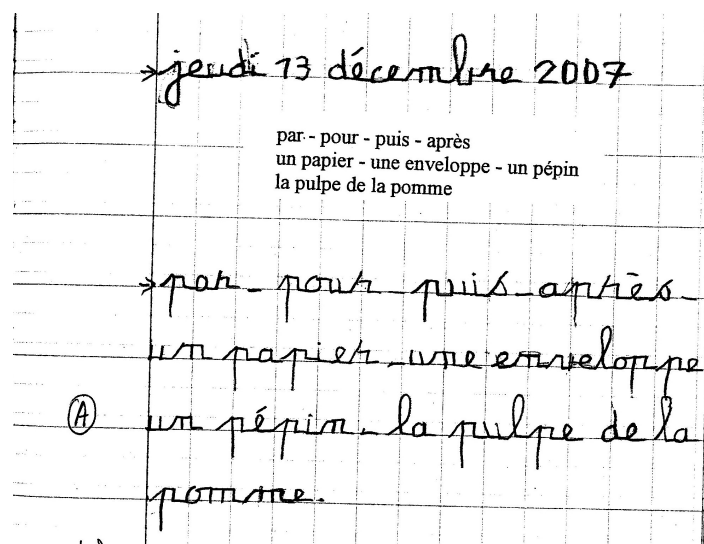 jeudi 13 décembre 2007
par - pour - puis - après
un papier - une enveloppe - un pépin
la pulpe de la pomme
par - pour - puis - après -
un papier - une enveloppe
A un pépin - la pulpe de la
pomme.